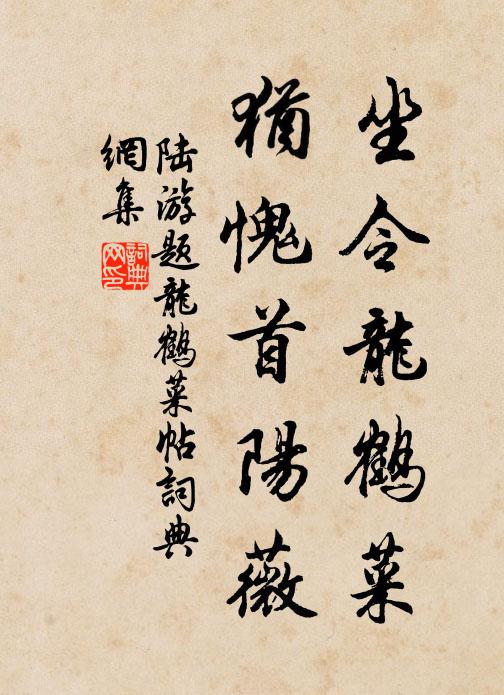 坐令龍鶴菜
猶愧首陽薇
陆游题龍鶴菜帖詞典
網集
詞典網印